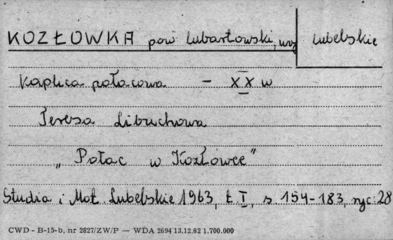 KOZŁÓWKA pow lubartowski, woj lubelskie
Kaplica pałacowa - XX w
Teresa Libuchowa
"Pałac w Kozłówce"
Studia i Mat. Lubelskie 1963, t. I, s 154-183, ryc: 28
CWD - B-15-b, nr 2827/ZW/P — WDA 2694 13.12.82 1.700.000